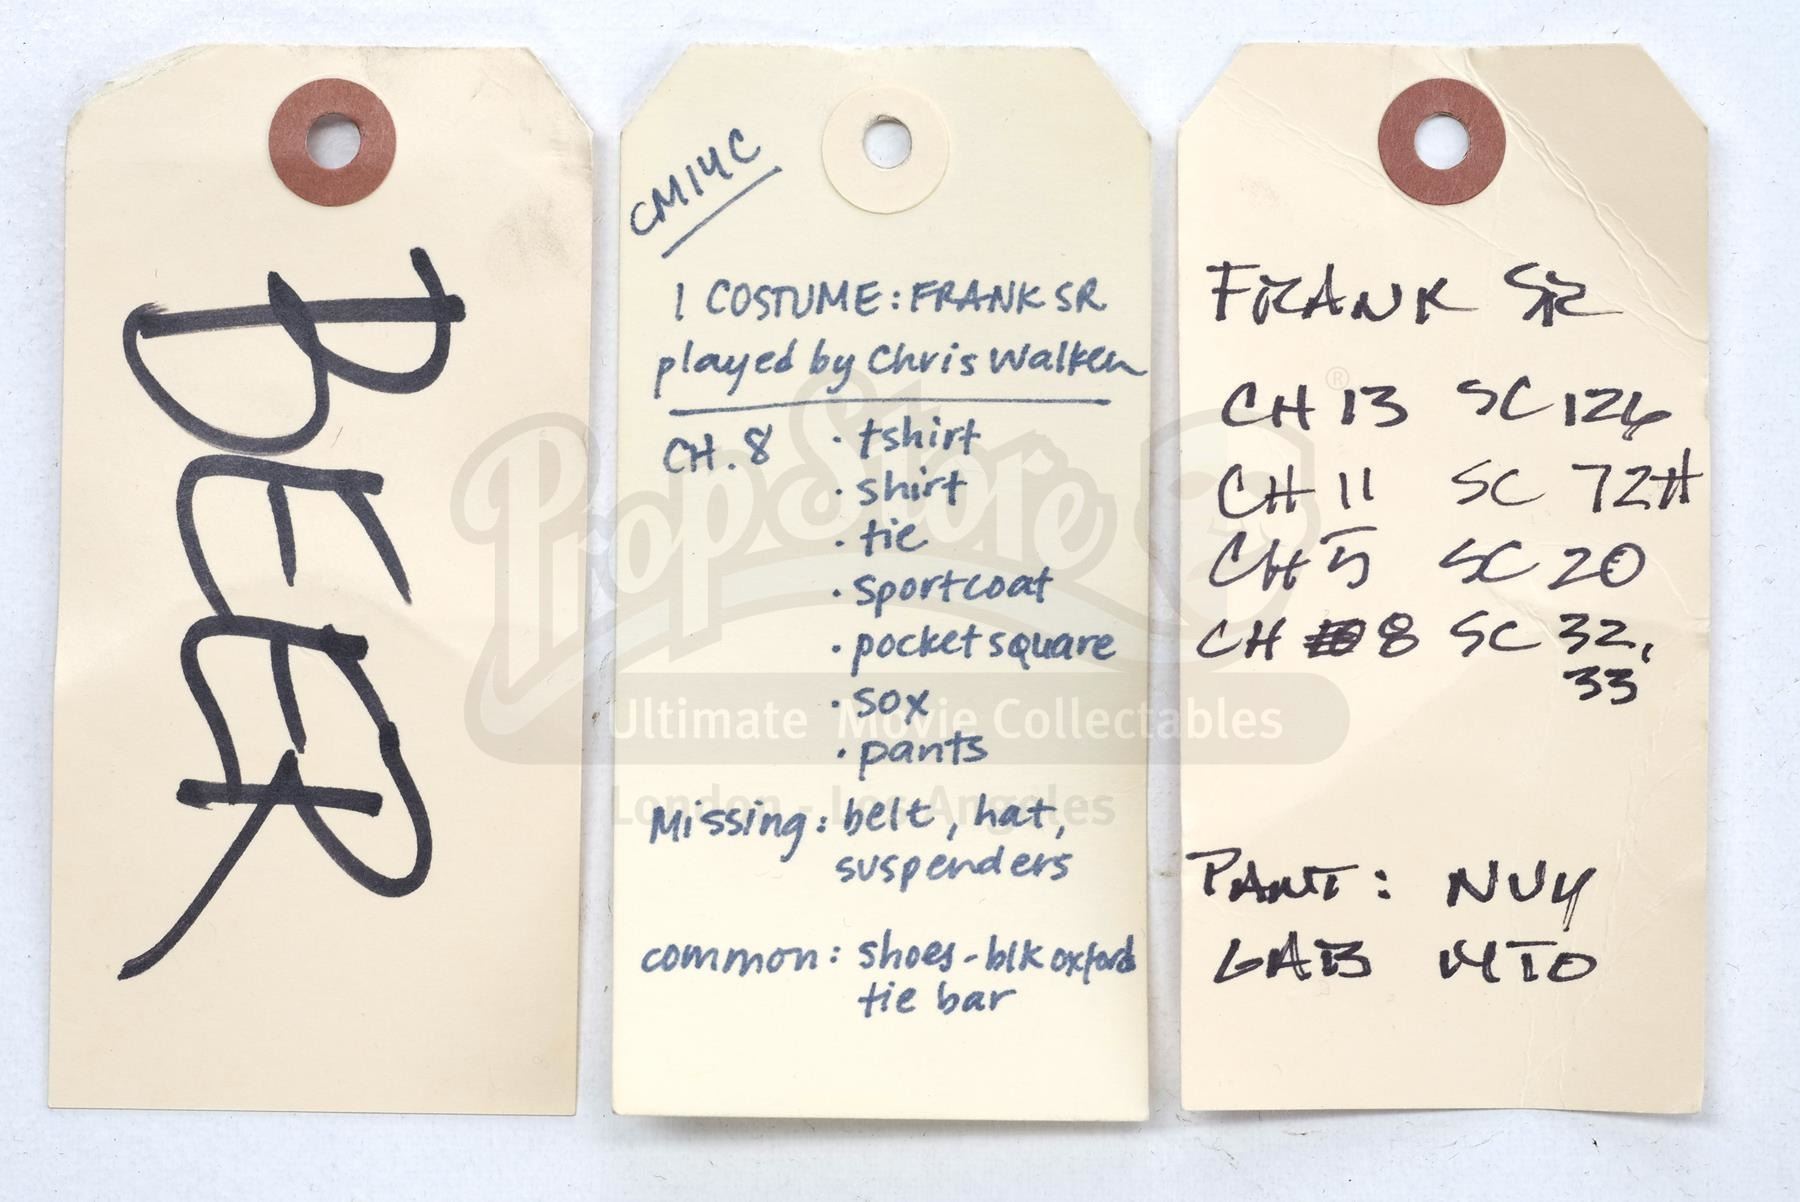 BEER
CM14C
1 COSTUME: FRANK SR
played by Chris Walken
CH. 8 · tshirt
· shirt
· tie
· sportcoat
· pocket square
· sox
· pants
Missing: belt, hat,
suspenders
common: shoes - blk oxfords
tie bar
FRANK SR
CH 13 SC 126
CH 11 SC 72H
CH 5 SC 20
CH 8 SC 32,
33
PANT: NVY
GAB MTO
PropStore
®
Ultimate Movie Collectables
London - Los Angeles